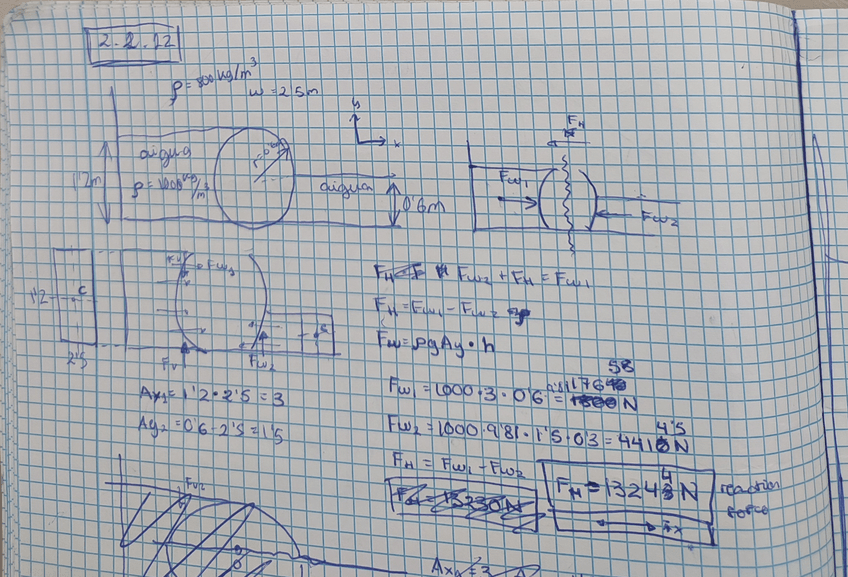 2.2.12
ρ=800 kg/m³
w=2'5m
y
x
aigua
ρ=1000 kg/m³
1'2m
aigua
0'6m
F_H
F_W1
F_W2
1'2
C
2'5
F_V
F_W2
F_W2 + F_H = F_W1
F_H = F_W1 - F_W2
F_W = ρgAy·h
A_X1 = 1'2·2'5 = 3
A_y2 = 0'6·2'5 = 1'5
F_W1 = 1000·3·0'6·9'81 = 17658 N
F_W2 = 1000·9'81·1'5·0'3 = 4414'5 N
F_H = F_W1 - F_W2
F_H = 13230 N
F_H = 13244 N
reaction
force
F_V2